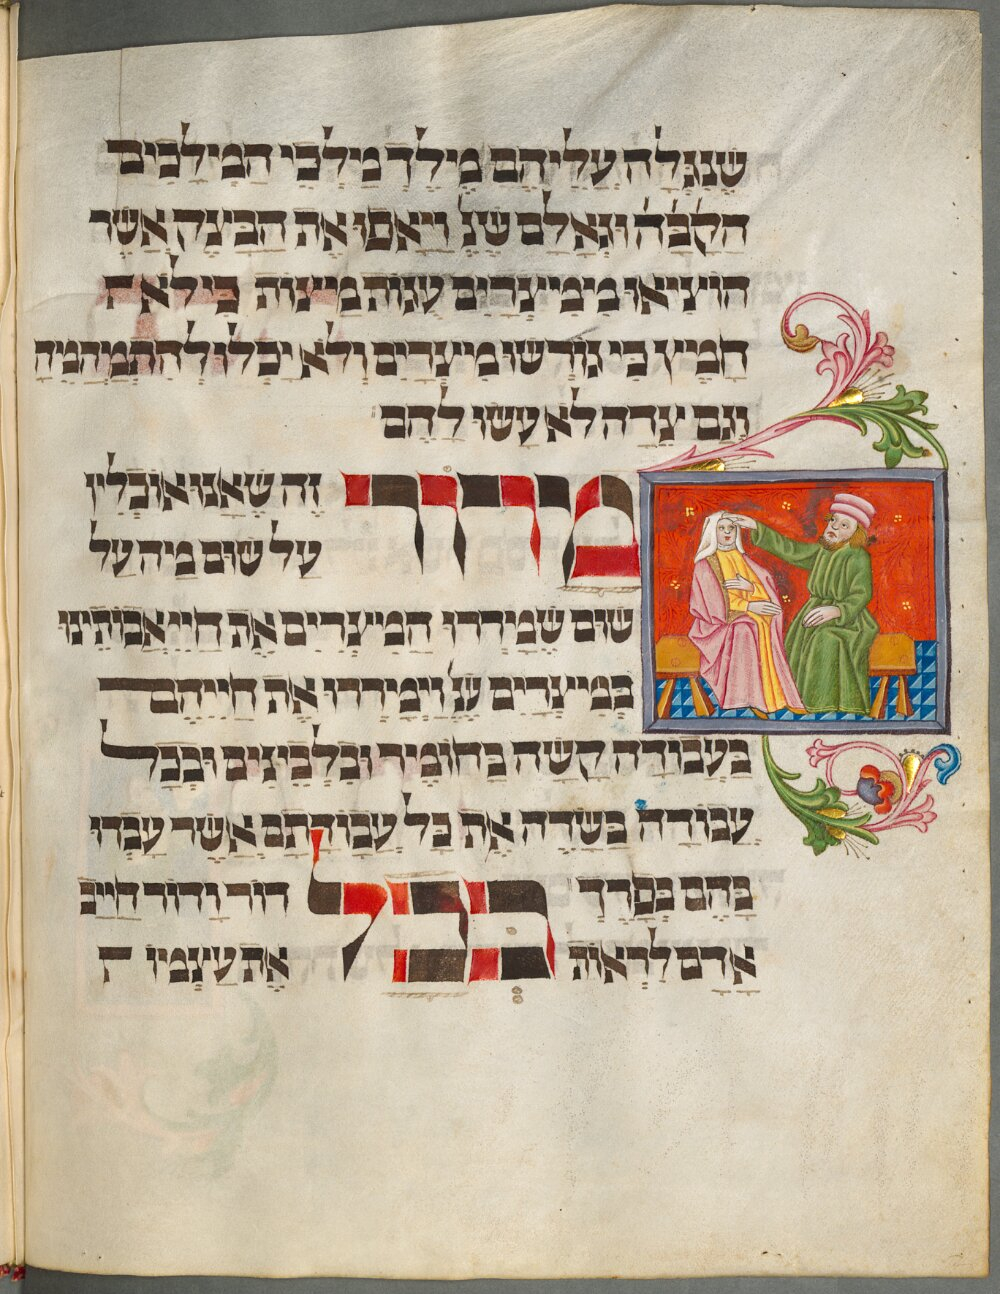 שנגלה עליהם מלך מלכי המלכים
הקבה וגאלם שנ ויאפו את הבצק אשר
הוציאו ממצרים עוגת מצות כי לא
חמץ כי גורשו מצרים ולא יכלו להתמהמה
וגם צדה לא עשו להם
מרור זה שאנו אוכלין
על שום מה על
שום שמררו המצרים את חיי אבותינו
במצרים שנ וימררו את חייהם
בעבודה קשה בחומר ובלבנים ובכל
עבודה בשדה את כל עבודתם אשר עבדו
בהם בפרך בכל דור ודור חייב
אדם לראות את עצמו